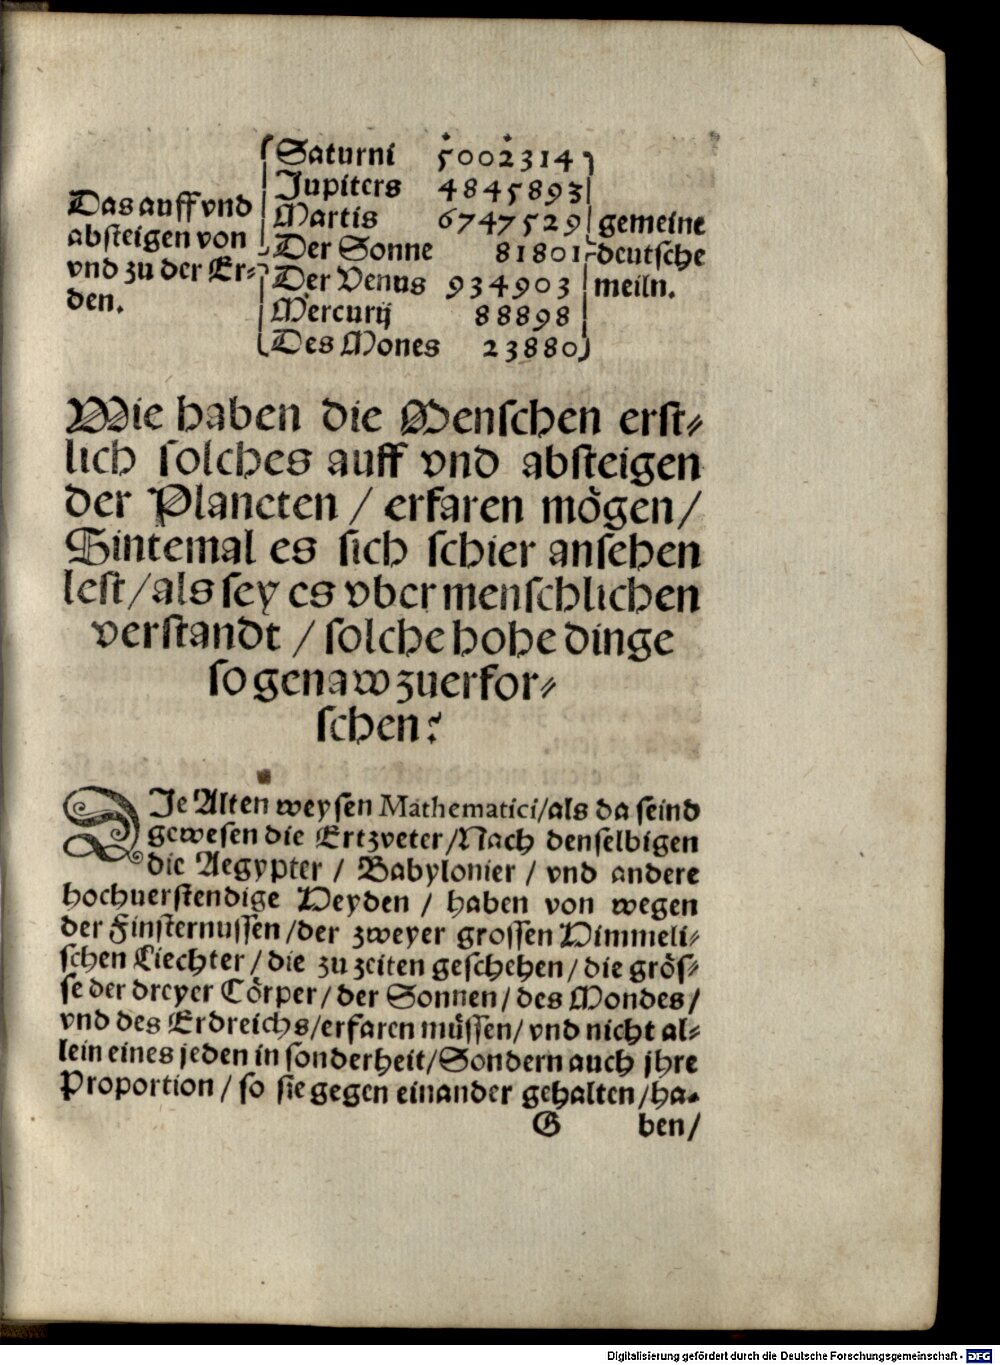 Das auff vnd
absteigen von
vnd zu der Er⸗
den.
Saturni 5002314
Jupiters 4845893
Martis 6747529
Der Sonne 81801
Der Venus 934903
Mercurij 88898
Des Mones 23880
gemeine
deutsche
meiln.
Wie haben die Menschen erst⸗
lich solches auff vnd absteigen
der Planeten / erfaren mögen /
Sintemal es sich schier ansehen
lest / als sey es vber menschlichen
verstandt / solche hohe dinge
so genaw zuerfor⸗
schen?
DIe Alten weysen Mathematici / als da seind
gewesen die Ertzveter / Nach denselbigen
die Aegypter / Babylonier / vnd andere
hochuerstendige Heyden / haben von wegen
der Finsternussen / der zweyer grossen Himmeli⸗
schen Liechter / die zu zeiten geschehen / die grös⸗
se der dreyer Cörper / der Sonnen / des Mondes /
vnd des Erdreichs / erfaren müssen / vnd nicht al⸗
lein eines jeden in sonderheit / Sondern auch jhre
Proportion / so sie gegen einander gehalten / ha⸗
G ben /
Digitalisierung gefördert durch die Deutsche Forschungsgemeinschaft - DFG